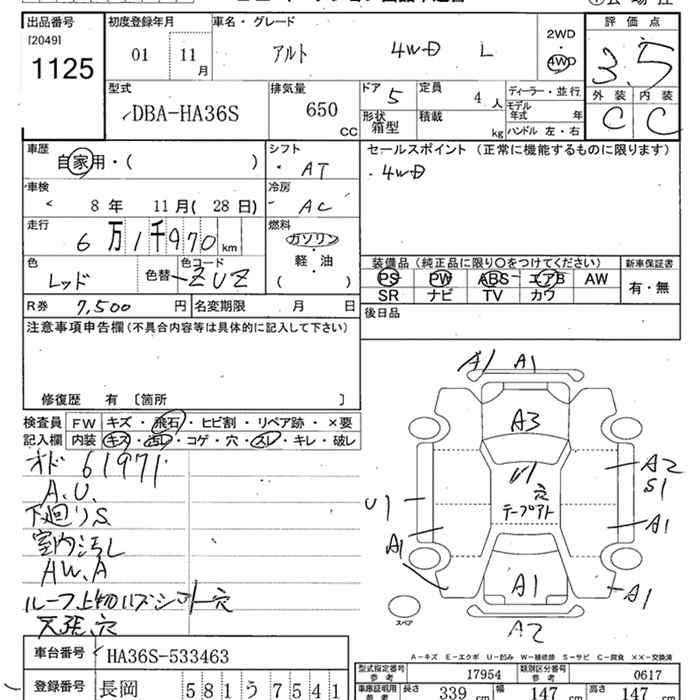 出品番号 初度登録年月 車名・グレード 評価点
[2049] 1125 01 11月 アルト 4WD L 2WD 4WD 3.5
型式 排気量 ドア 5 定員 4人 ディーラー・並行 外装 内装
DBA-HA36S 650 CC 形状 箱型 積載 kg モデル年式 年 ハンドル 左・右 C C
車歴 シフト セールスポイント(正常に機能するものに限ります)
自家用・( ) AT 4WD
車検 冷房
8年 11月(28日) AC
走行 燃料
6万1千970km ガソリン
色 色替 色コード 軽・油 装備品(純正品に限り○をつけてください) 新車保証書
レッド ZUZ ( ) PS PW ABS エアB AW 有・無
SR ナビ TV カワ
R券 7,500円 名変期限 月 日 後日品
注意事項申告欄(不具合内容等は具体的に記入して下さい)
修復歴 有 〔箇所 〕
検査員 FW キズ・飛石・ヒビ割・リペア跡・×要
記入欄 内装 キズ・汚レ・コゲ・穴・スレ・キレ・破レ
オド 61971
A.U.
下廻りS
室内汚レ
AW.A
穴
天張穴
A1 A1
A3
U1
穴
テープアト
A2
S1
U1
A1
A1
A1
A1
A2
スペア
A-キズ E-エクボ U-凹み W-補修跡 S-サビ C-腐食 ××-交換済
車台番号 HA36S-533463 型式指定番号 参考 17954 類別区分番号 参考 0617
登録番号 長岡 581う7541 車庫証明用 参考 長さ 339cm 幅 147cm 高さ 147cm